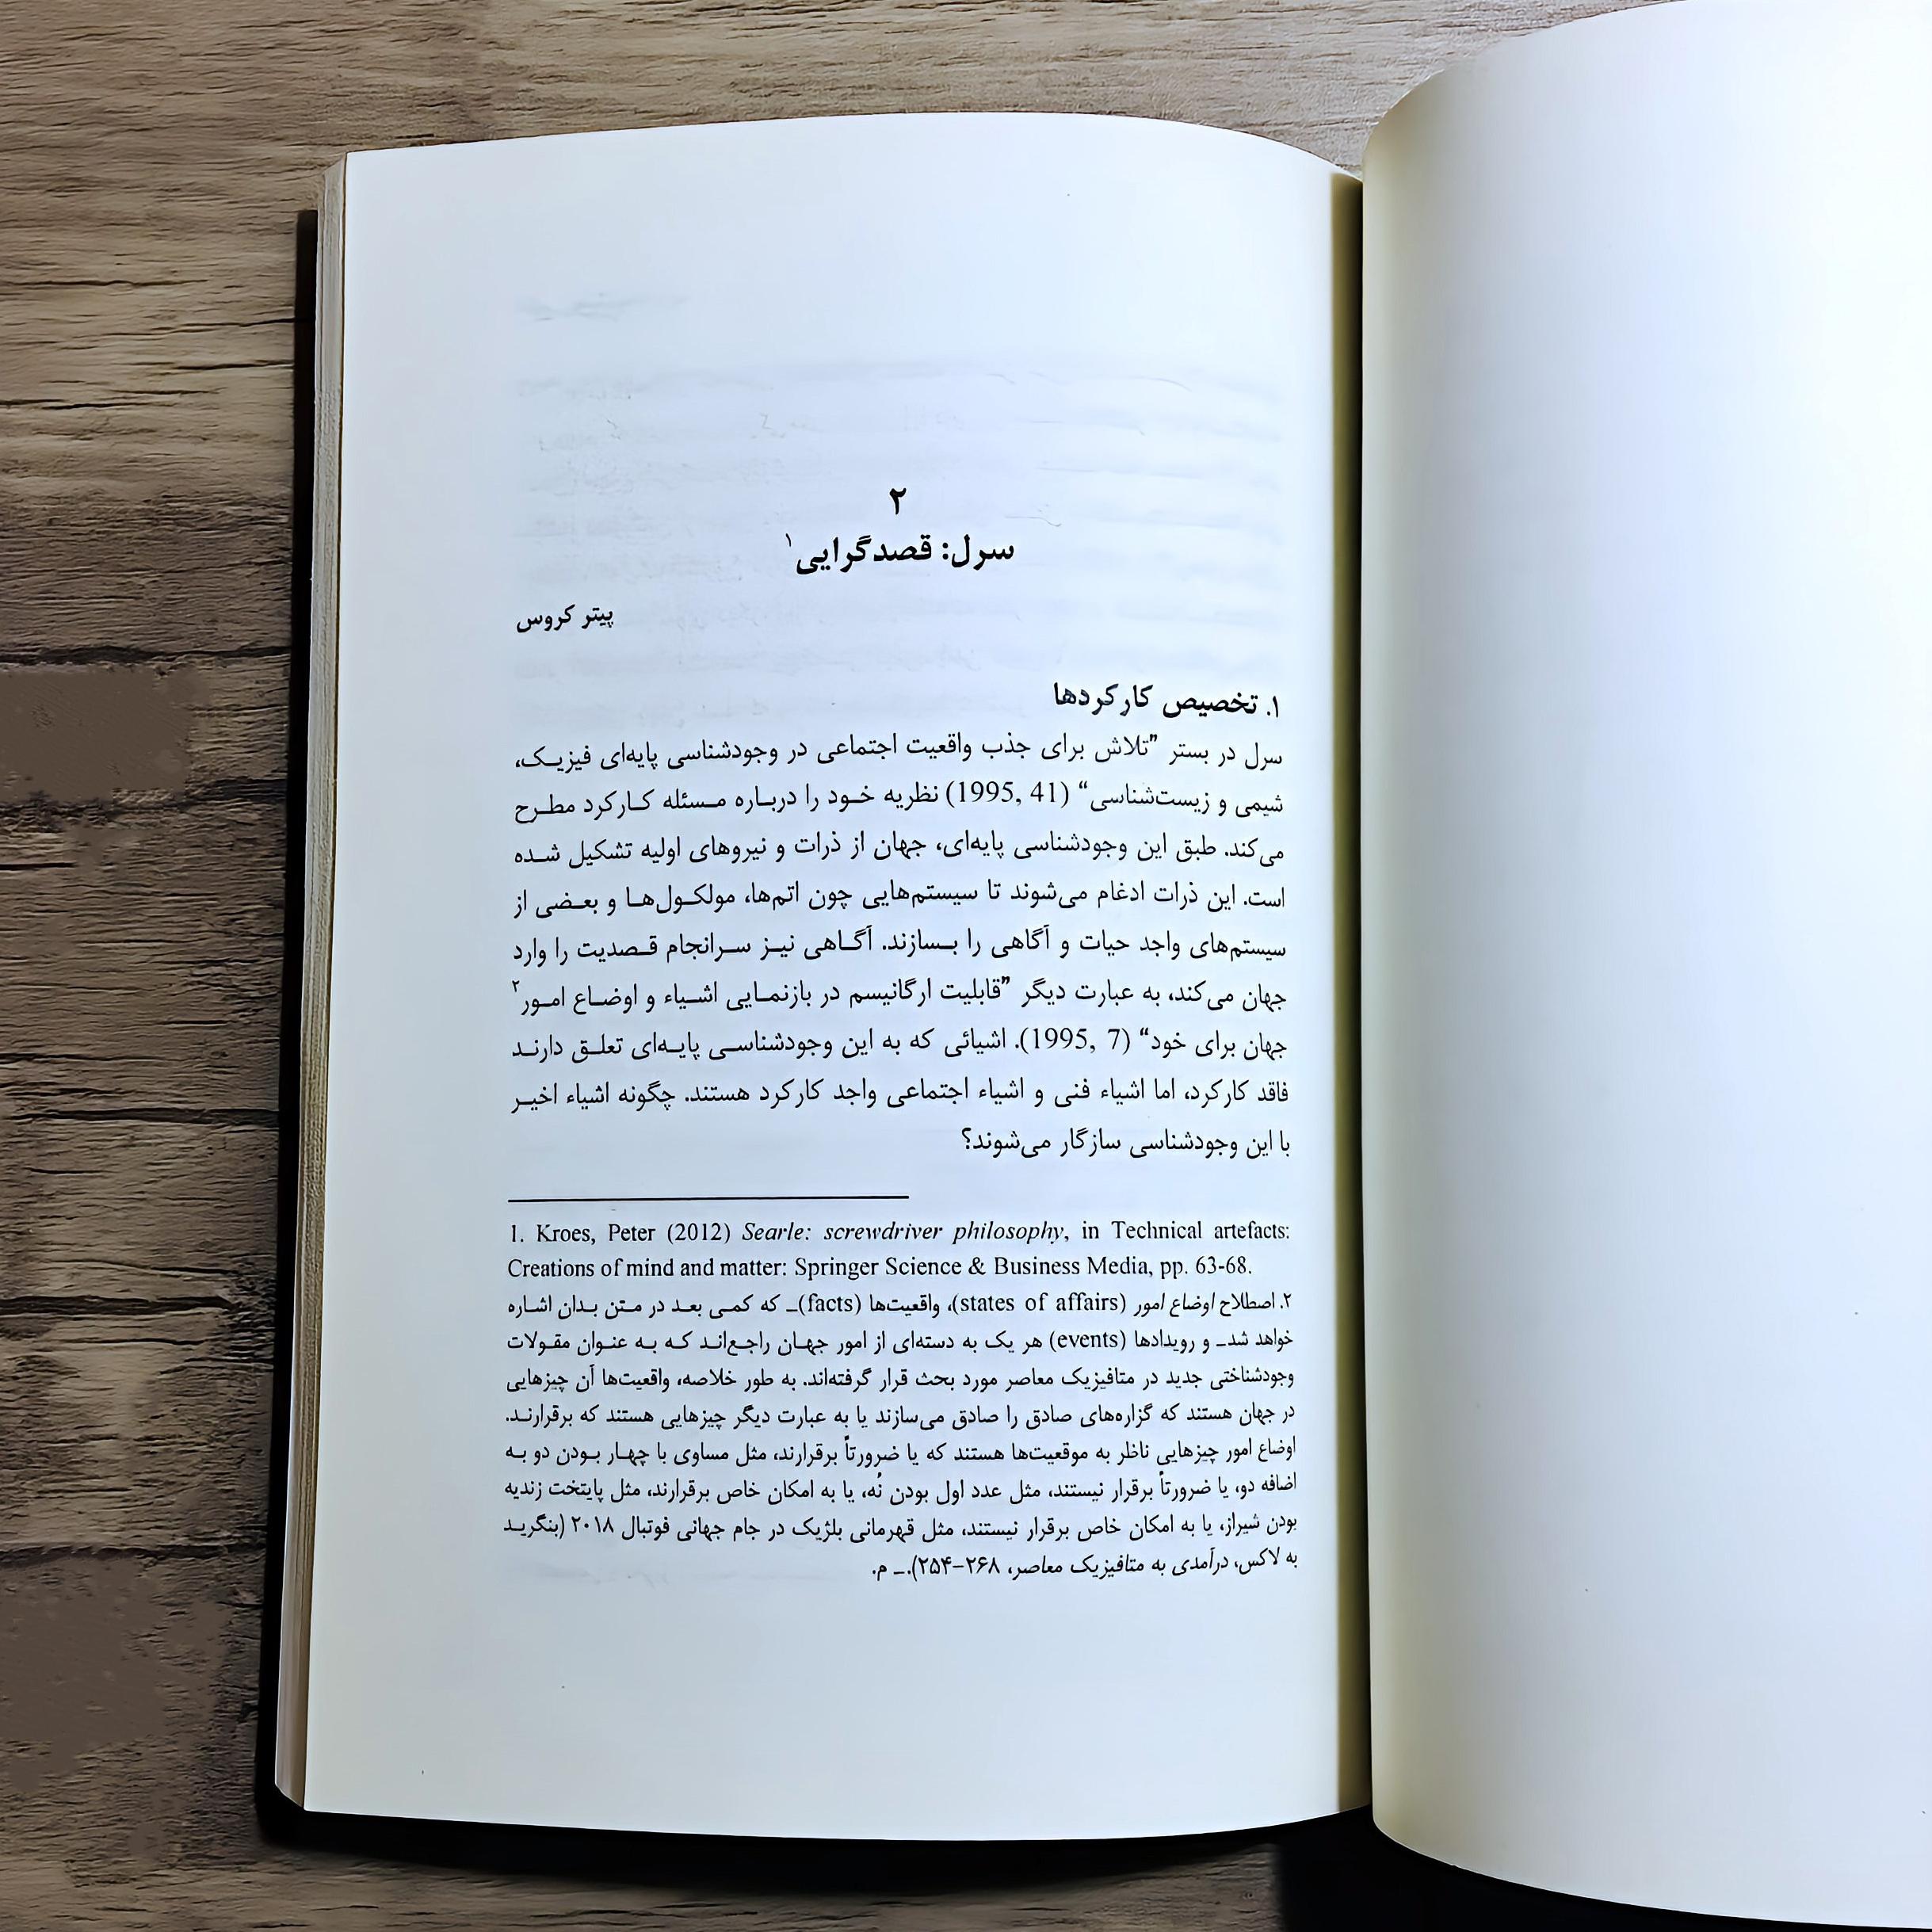 ۲
سرل: قصدگرایی۱
پیتر کروس
۱. تخصیص کارکردها
سرل در بستر ”تلاش برای جذب واقعیت اجتماعی در وجودشناسی پایه‌ای فیزیک،
شیمی و زیست‌شناسی“ (1995, 41) نظریه خود را درباره مسئله کارکرد مطرح
می‌کند. طبق این وجودشناسی پایه‌ای، جهان از ذرات و نیروهای اولیه تشکیل شده
است. این ذرات ادغام می‌شوند تا سیستم‌هایی چون اتم‌ها، مولکول‌ها و بعضی از
سیستم‌های واجد حیات و آگاهی را بسازند. آگاهی نیز سرانجام قصدیت را وارد
جهان می‌کند، به عبارت دیگر ”قابلیت ارگانیسم در بازنمایی اشیاء و اوضاع امور۲
جهان برای خود“ (1995, 7). اشیائی که به این وجودشناسی پایه‌ای تعلق دارند
فاقد کارکرد، اما اشیاء فنی و اشیاء اجتماعی واجد کارکرد هستند. چگونه اشیاء اخیر
با این وجودشناسی سازگار می‌شوند؟
1. Kroes, Peter (2012) Searle: screwdriver philosophy, in Technical artefacts:
Creations of mind and matter: Springer Science & Business Media, pp. 63-68.
۲. اصطلاح اوضاع امور (states of affairs)، واقعیت‌ها (facts)ـ که کمی بعد در متن بدان اشاره
خواهد شدـ و رویدادها (events) هر یک به دسته‌ای از امور جهان راجع‌اند که به عنوان مقولات
وجودشناختی جدید در متافیزیک معاصر مورد بحث قرار گرفته‌اند. به طور خلاصه، واقعیت‌ها آن چیزهایی
در جهان هستند که گزاره‌های صادق را صادق می‌سازند یا به عبارت دیگر چیزهایی هستند که برقرارند.
اوضاع امور چیزهایی ناظر به موقعیت‌ها هستند که یا ضرورتاً برقرارند، مثل مساوی با چهار بودن دو به
اضافه دو، یا ضرورتاً برقرار نیستند، مثل عدد اول بودن نُه، یا به امکان خاص برقرارند، مثل پایتخت زندیه
بودن شیراز، یا به امکان خاص برقرار نیستند، مثل قهرمانی بلژیک در جام جهانی فوتبال ۲۰۱۸ (بنگرید
به لاکس، درآمدی به متافیزیک معاصر، ۲۶۸-۲۵۴).ـ م.